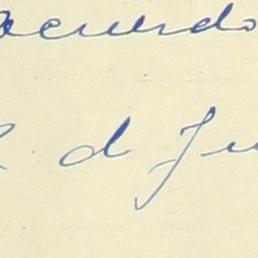 acuerdo
d Ju